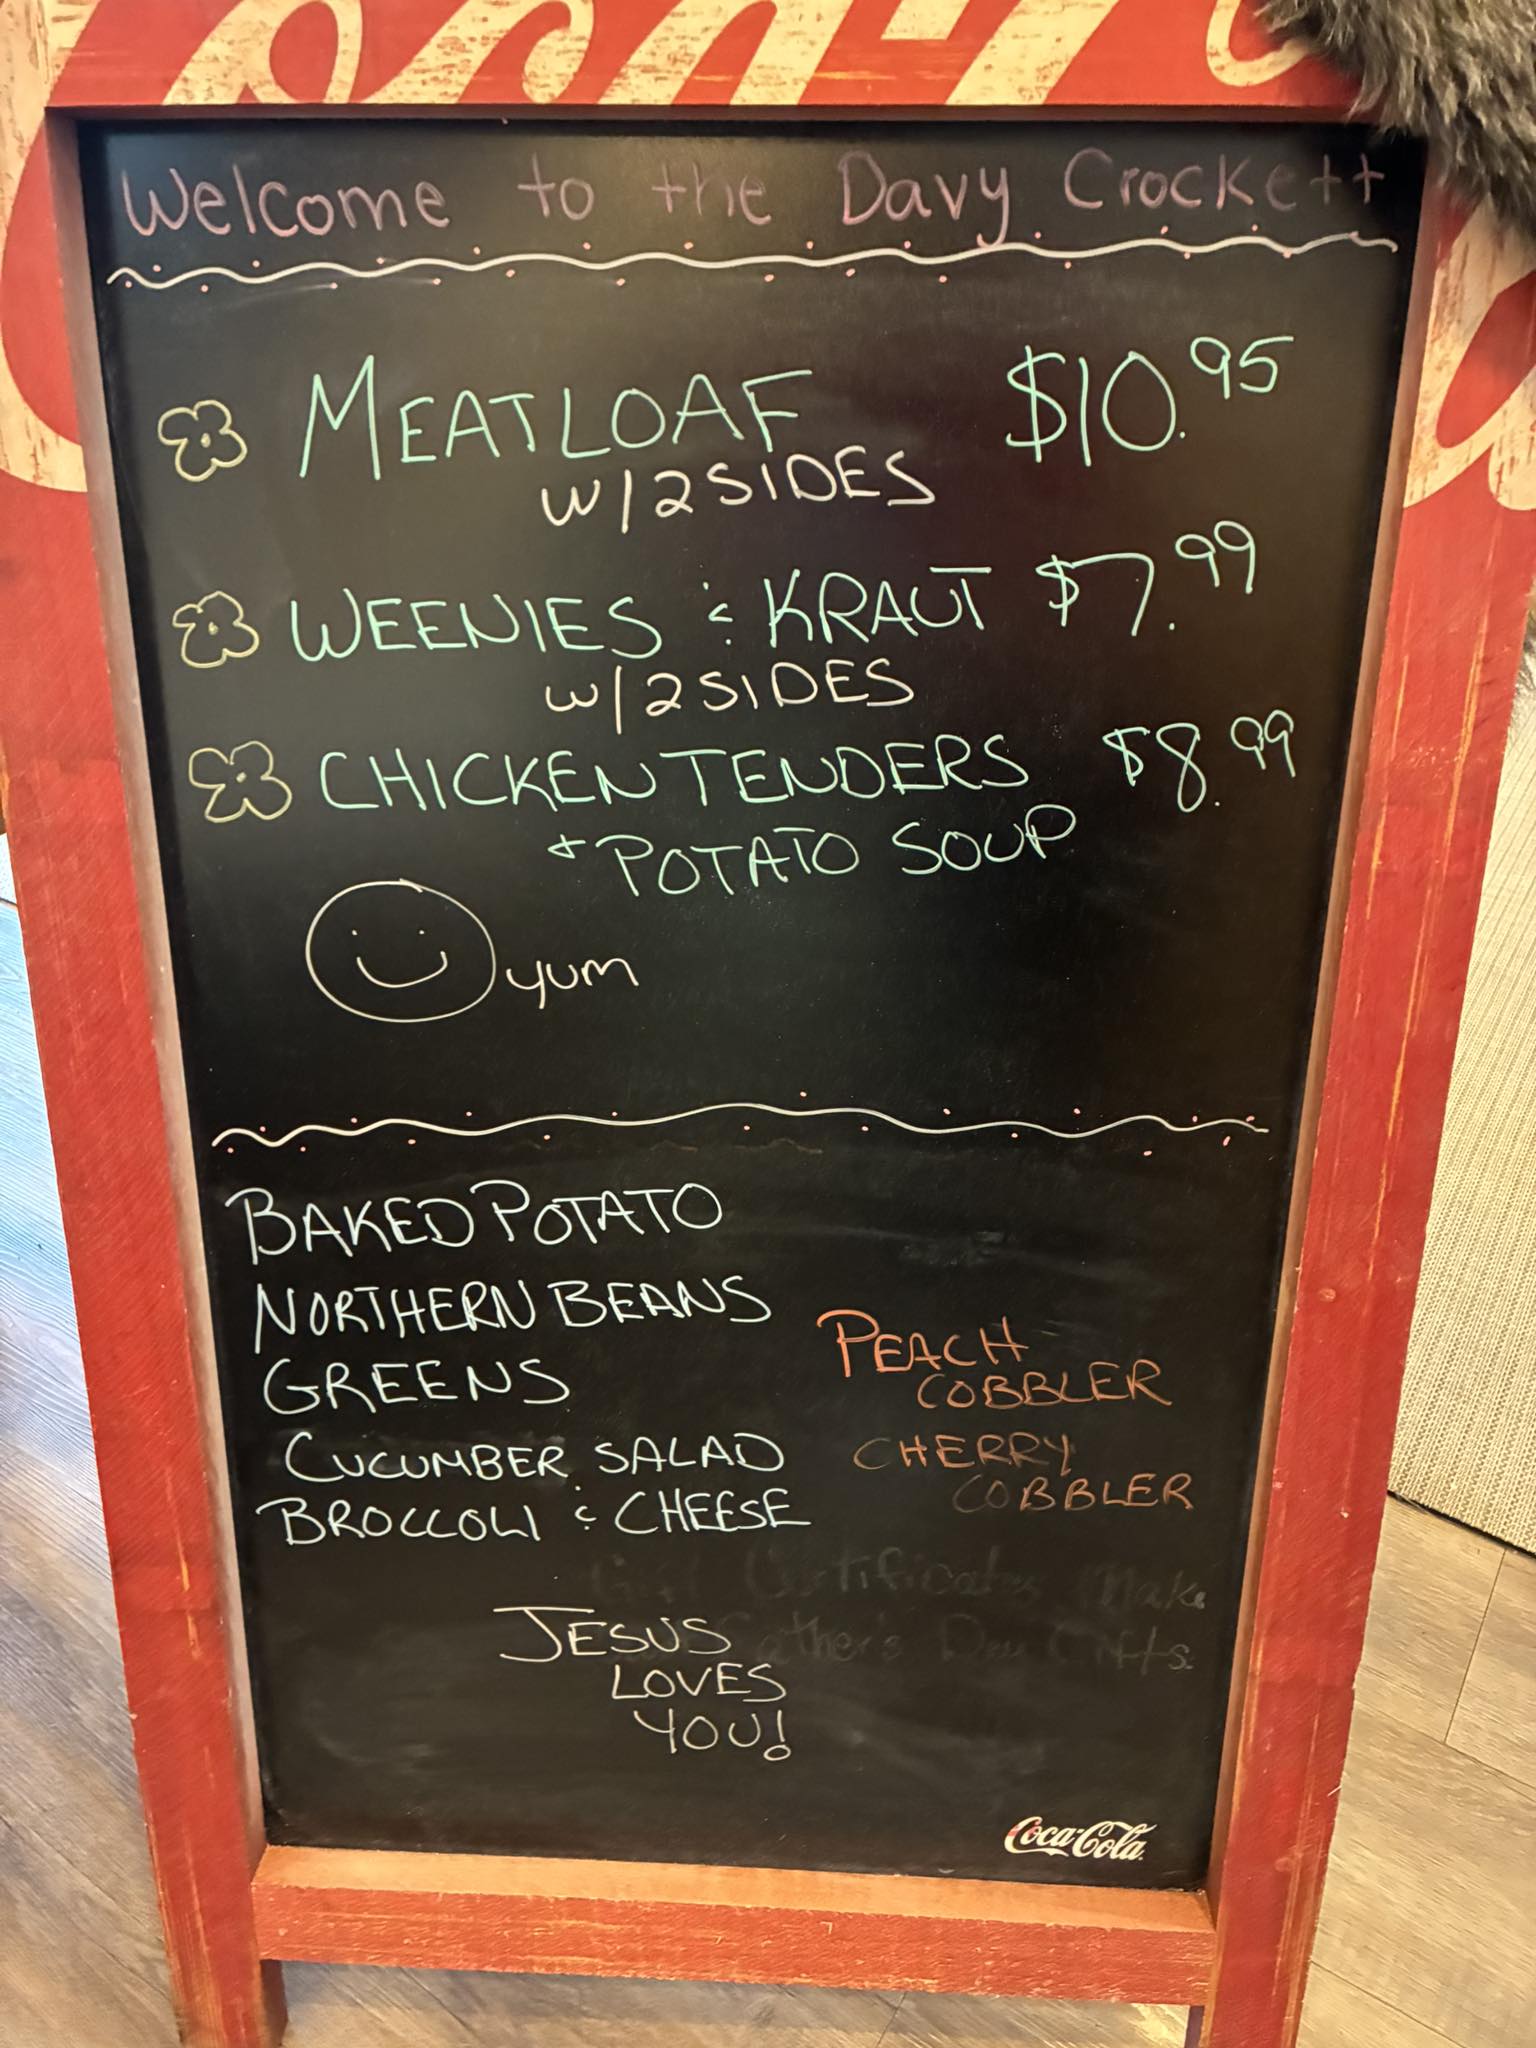 Welcome to the Davy Crockett
MEATLOAF $10.95
W/2 SIDES
WEENIES & KRAUT $7.99
W/2 SIDES
CHICKEN TENDERS $8.99
+ POTATO SOUP
yum
BAKED POTATO
NORTHERN BEANS
GREENS
CUCUMBER SALAD
BROCCOLI & CHEESE
PEACH
COBBLER
CHERRY
COBBLER
Certificates Make
Father's Day Gifts.
JESUS
LOVES
YOU!
Coca-Cola